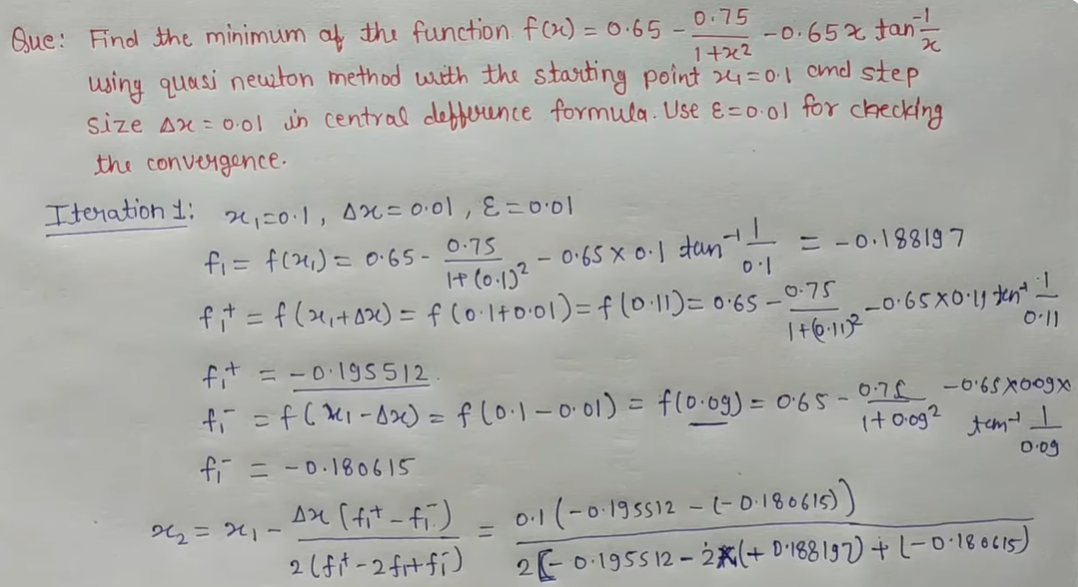 Que: Find the minimum of the function f(x) = 0.65 - 0.75/(1+x²) - 0.65x tan⁻¹ 1/x
using quasi newton method with the starting point x₁=0.1 and step
size Δx = 0.01 in central defference formula. Use ε=0.01 for checking
the convergence.
Iteration 1: x₁=0.1, Δx=0.01, ε=0.01
f₁ = f(x₁) = 0.65 - 0.75/(1+(0.1)²) - 0.65×0.1 tan⁻¹ 1/0.1 = -0.188197
f₁⁺ = f(x₁+Δx) = f(0.1+0.01) = f(0.11) = 0.65 - 0.75/(1+(0.11)²) - 0.65×0.11 tan⁻¹ 1/0.11
f₁⁺ = -0.195512.
f₁⁻ = f(x₁-Δx) = f(0.1-0.01) = f(0.09) = 0.65 - 0.75/(1+0.09²) - 0.65×0.09× tan⁻¹ 1/0.09
f₁⁻ = -0.180615
x₂ = x₁ - Δx(f₁⁺-f₁⁻)/2(f₁⁺-2f₁+f₁⁻) = 0.1(-0.195512-(-0.180615))/2[-0.195512-2×(+0.188197)+(-0.180615)